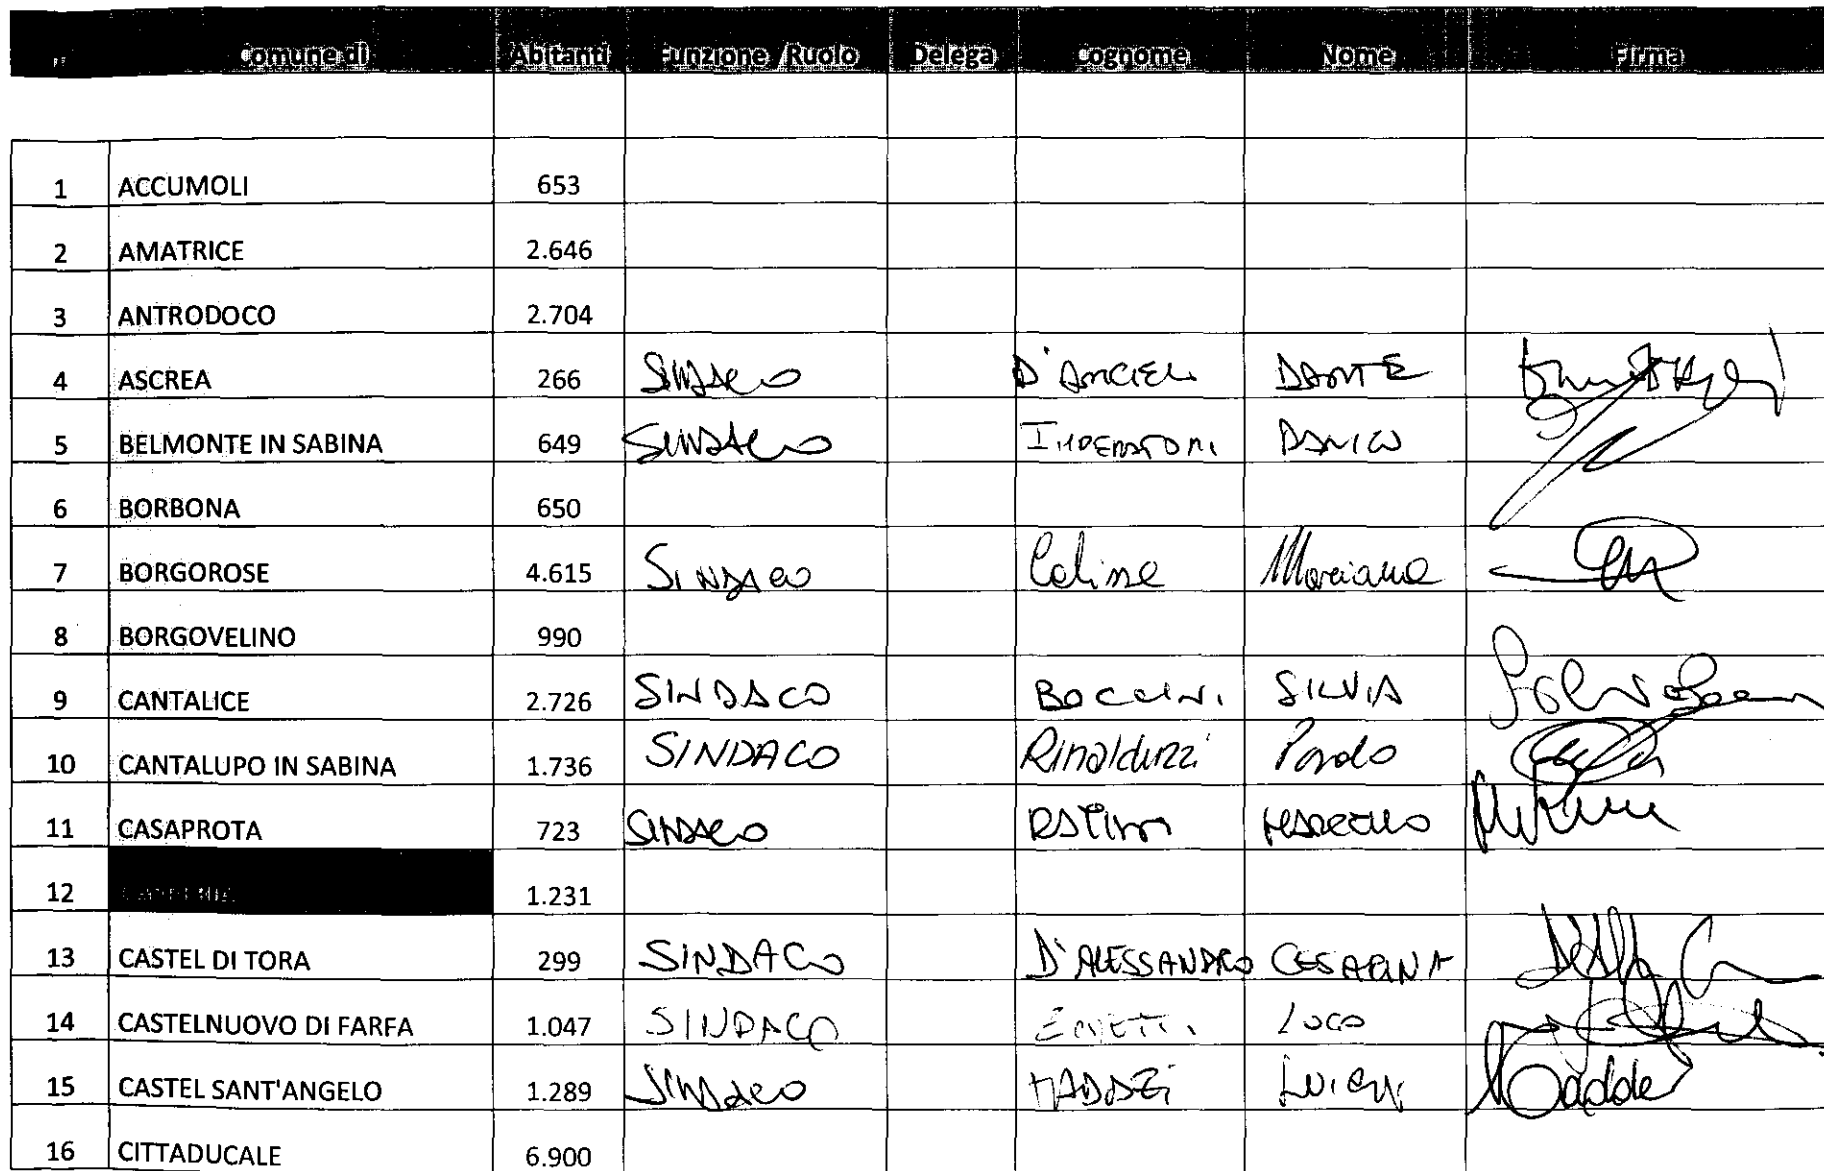 n Comune di Abitanti Funzione /Ruolo Delega Cognome Nome Firma
1 ACCUMOLI 653
2 AMATRICE 2.646
3 ANTRODOCO 2.704
4 ASCREA 266 SINDACO D'ANGELI DANTE
5 BELMONTE IN SABINA 649 SINDACO IMPERATORI DANILO
6 BORBONA 650
7 BORGOROSE 4.615 SINDACO Calisse Mariano
8 BORGOVELINO 990
9 CANTALICE 2.726 SINDACO BOCCINI SILVIA
10 CANTALUPO IN SABINA 1.736 SINDACO Rinalduzzi Paolo
11 CASAPROTA 723 SINDACO RATINI MARCELLO
12 1.231
13 CASTEL DI TORA 299 SINDACO D'ALESSANDRO CESARINA
14 CASTELNUOVO DI FARFA 1.047 SINDACO LUCA
15 CASTEL SANT'ANGELO 1.289 SINDACO TADDEI LUIGI
16 CITTADUCALE 6.900